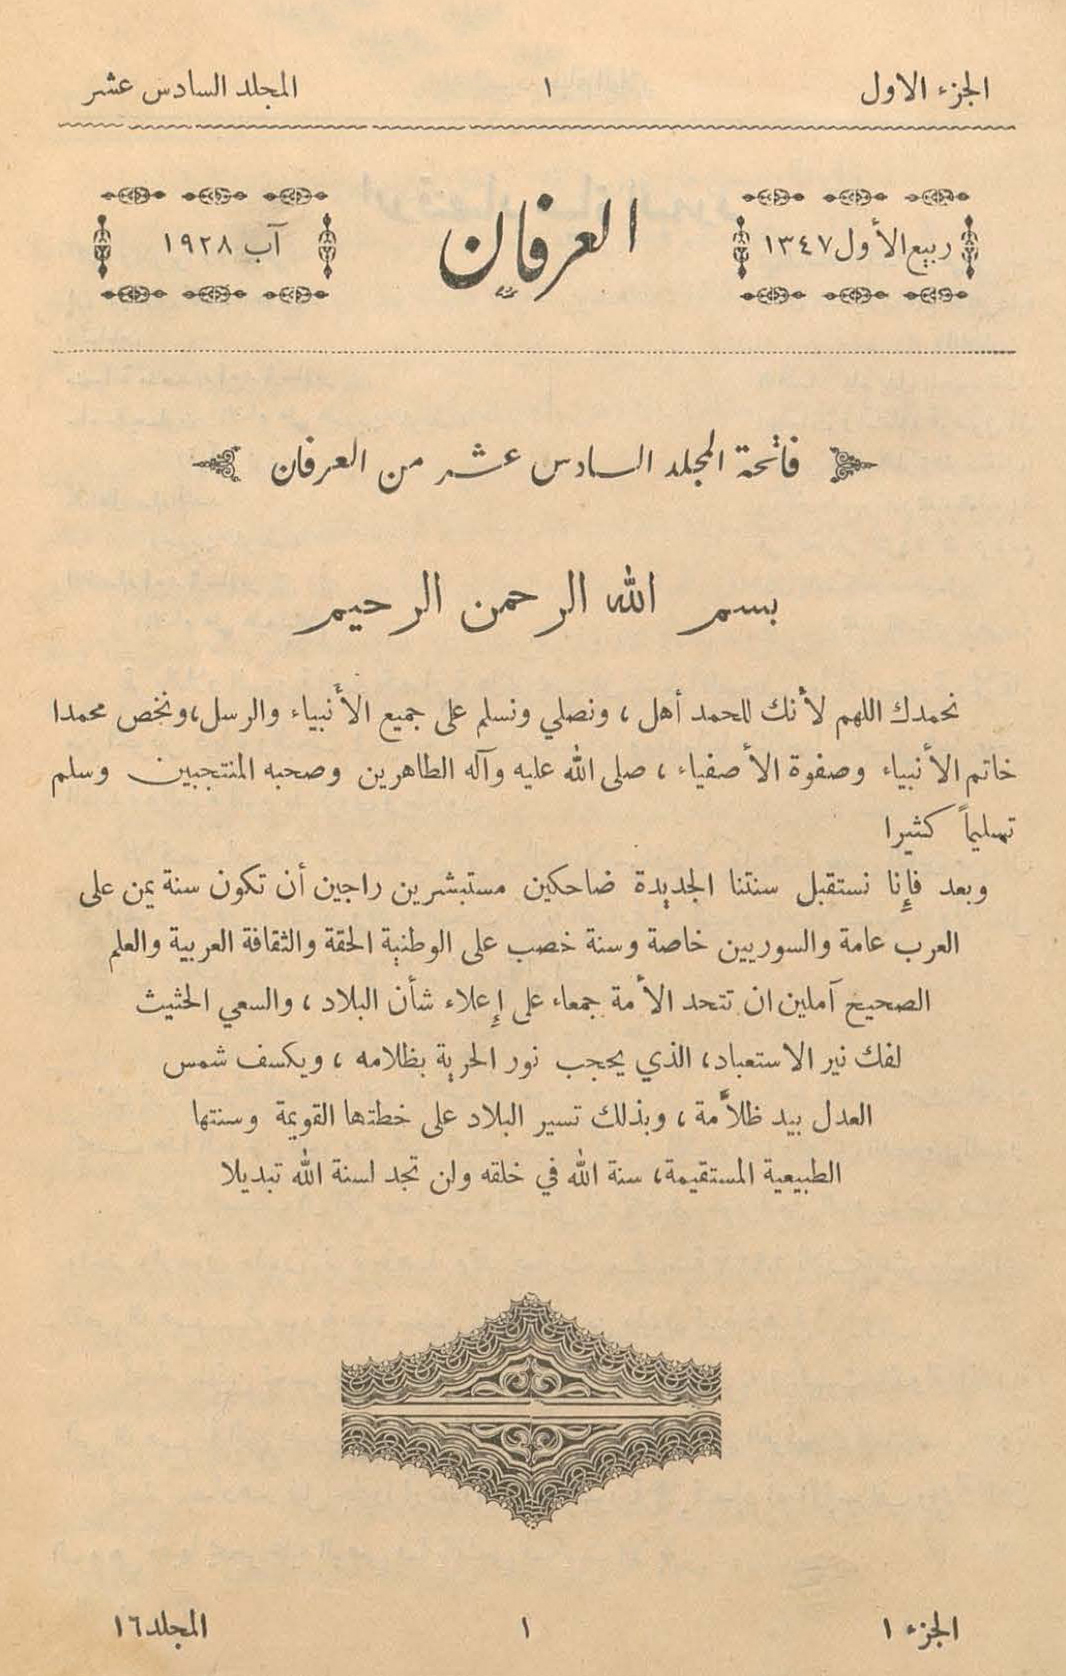 الجزء الاول ١ المجلد السادس عشر
ربيع الأول ١٣٤٧ العرفان آب ١٩٢٨
فاتحة المجلد السادس عشر من العرفان
بسم الله الرحمن الرحيم
نحمدك اللهم لأنك للحمد أهل ، ونصلي ونسلم على جميع الأنبياء والرسل، ونخص محمدا
خاتم الأنبياء وصفوة الأصفياء ، صلى الله عليه وآله الطاهرين وصحبه المنتجبين وسلم
تسليماً كثيرا
وبعد فإنا نستقبل سنتنا الجديدة ضاحكين مستبشرين راجين أن تكون سنة يمن على
العرب عامة والسوريين خاصة وسنة خصب على الوطنية الحقة والثقافة العربية والعلم
الصحيح آملين ان تتحد الأمة جمعاء على إعلاء شأن البلاد ، والسعي الحثيث
لفك نير الاستعباد، الذي يحجب نور الحرية بظلامه ، ويكسف شمس
العدل بيد ظلاَّمة ، وبذلك تسير البلاد على خطتها القويمة وسنتها
الطبيعية المستقيمة، سنة الله في خلقه ولن تجد لسنة الله تبديلا
الجزء ١ ١ المجلد ١٦